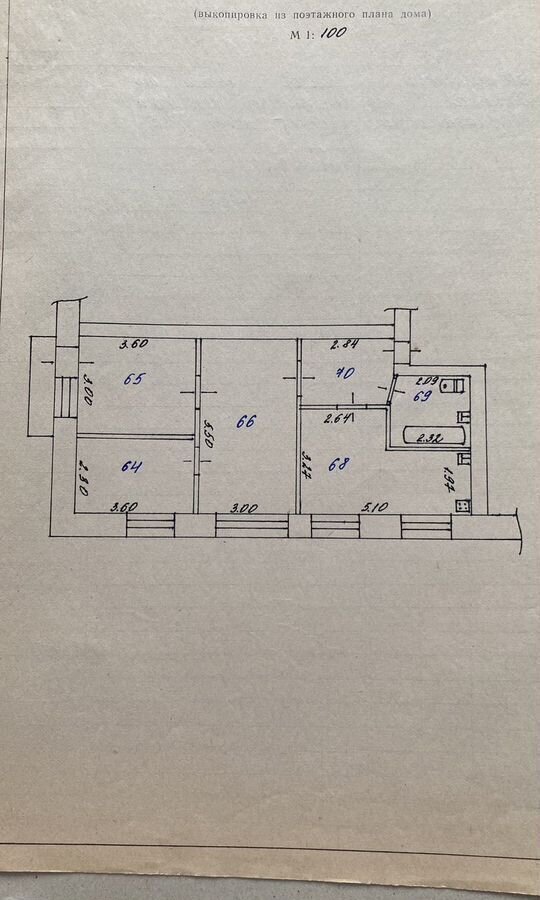 (выкопировка из поэтажного плана дома)
М 1: 100
3.60
2.84
65
3.00
70
2.09
69
66
2.64
5.50
2.32
64
2.30
3.27
68
1.97
3.60
3.00
5.10